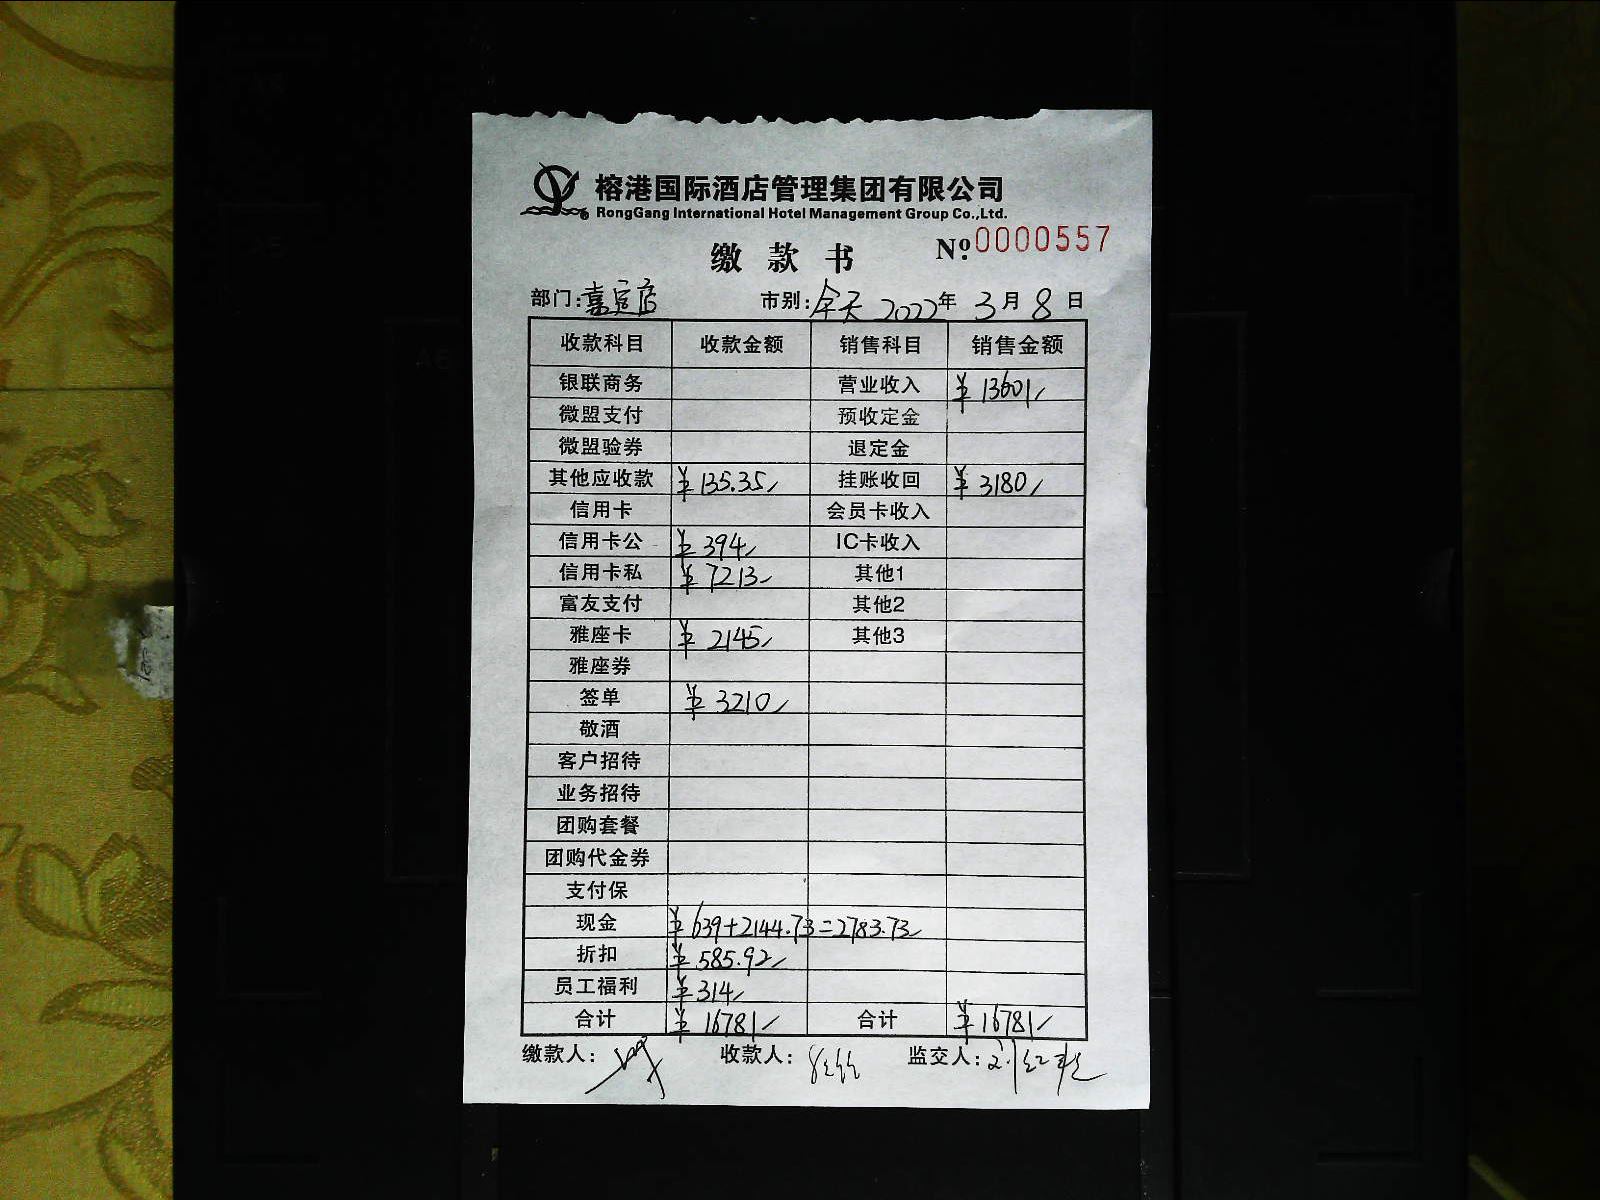 榕港国际酒店管理集团有限公司
RongGang International Hotel Management Group Co.,Ltd.
缴款书 Nº:0000557
部门:嘉定店 市别:全天 2022年 3月 8日
收款科目 收款金额 销售科目 销售金额
银联商务 营业收入 ¥13601
微盟支付 预收定金
微盟验券 退定金
其他应收款 ¥135.35 挂账收回 ¥3180
信用卡 会员卡收入
信用卡公 ¥394 IC卡收入
信用卡私 ¥7213 其他1
富友支付 其他2
雅座卡 ¥2145 其他3
雅座券
签单 ¥3210
敬酒
客户招待
业务招待
团购套餐
团购代金券
支付保
现金 ¥639+2144.73=2783.73
折扣 ¥585.92
员工福利 ¥314
合计 ¥16781 合计 ¥16781
缴款人: 收款人: 监交人: